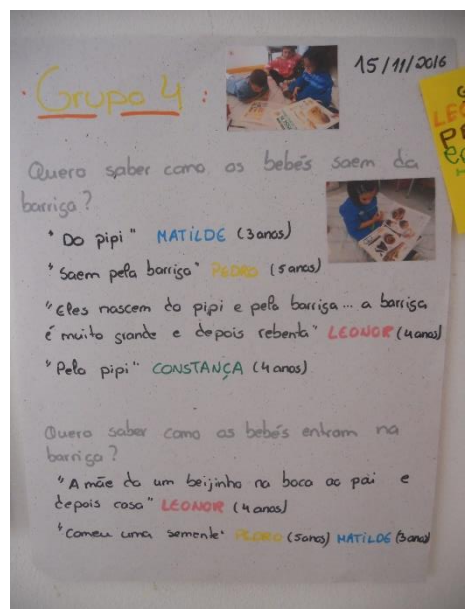 15/11/2016
Grupo 4:
Quero saber como os bebés saem da
barriga?
"Do pipi" MATILDE (3 anos)
"Saem pela barriga" PEDRO (5 anos)
"Eles nascem do pipi e pela barriga... a barriga
é muito grande e depois rebenta" LEONOR (4 anos)
"Pelo pipi" CONSTANÇA (4 anos)
Quero saber como os bebés entram na
barriga?
"A mãe da um beijinho na boca ao pai e
depois casa" LEONOR (4 anos)
"Comeu uma semente" PEDRO (5 anos) MATILDE (3 anos)